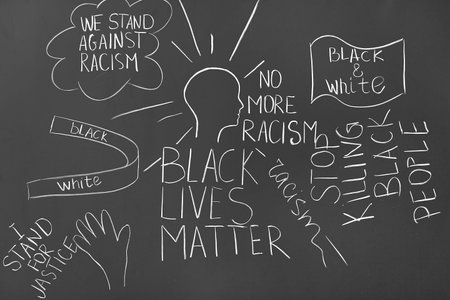 WE STAND
AGAINST
RACISM
BLACK
&
white
NO
MORE
RACISM
black
white
BLACK
LIVES
MATTER
racism
STOP
KILLING
BLACK
PEOPLE
I
STAND
FOR
JASTICE